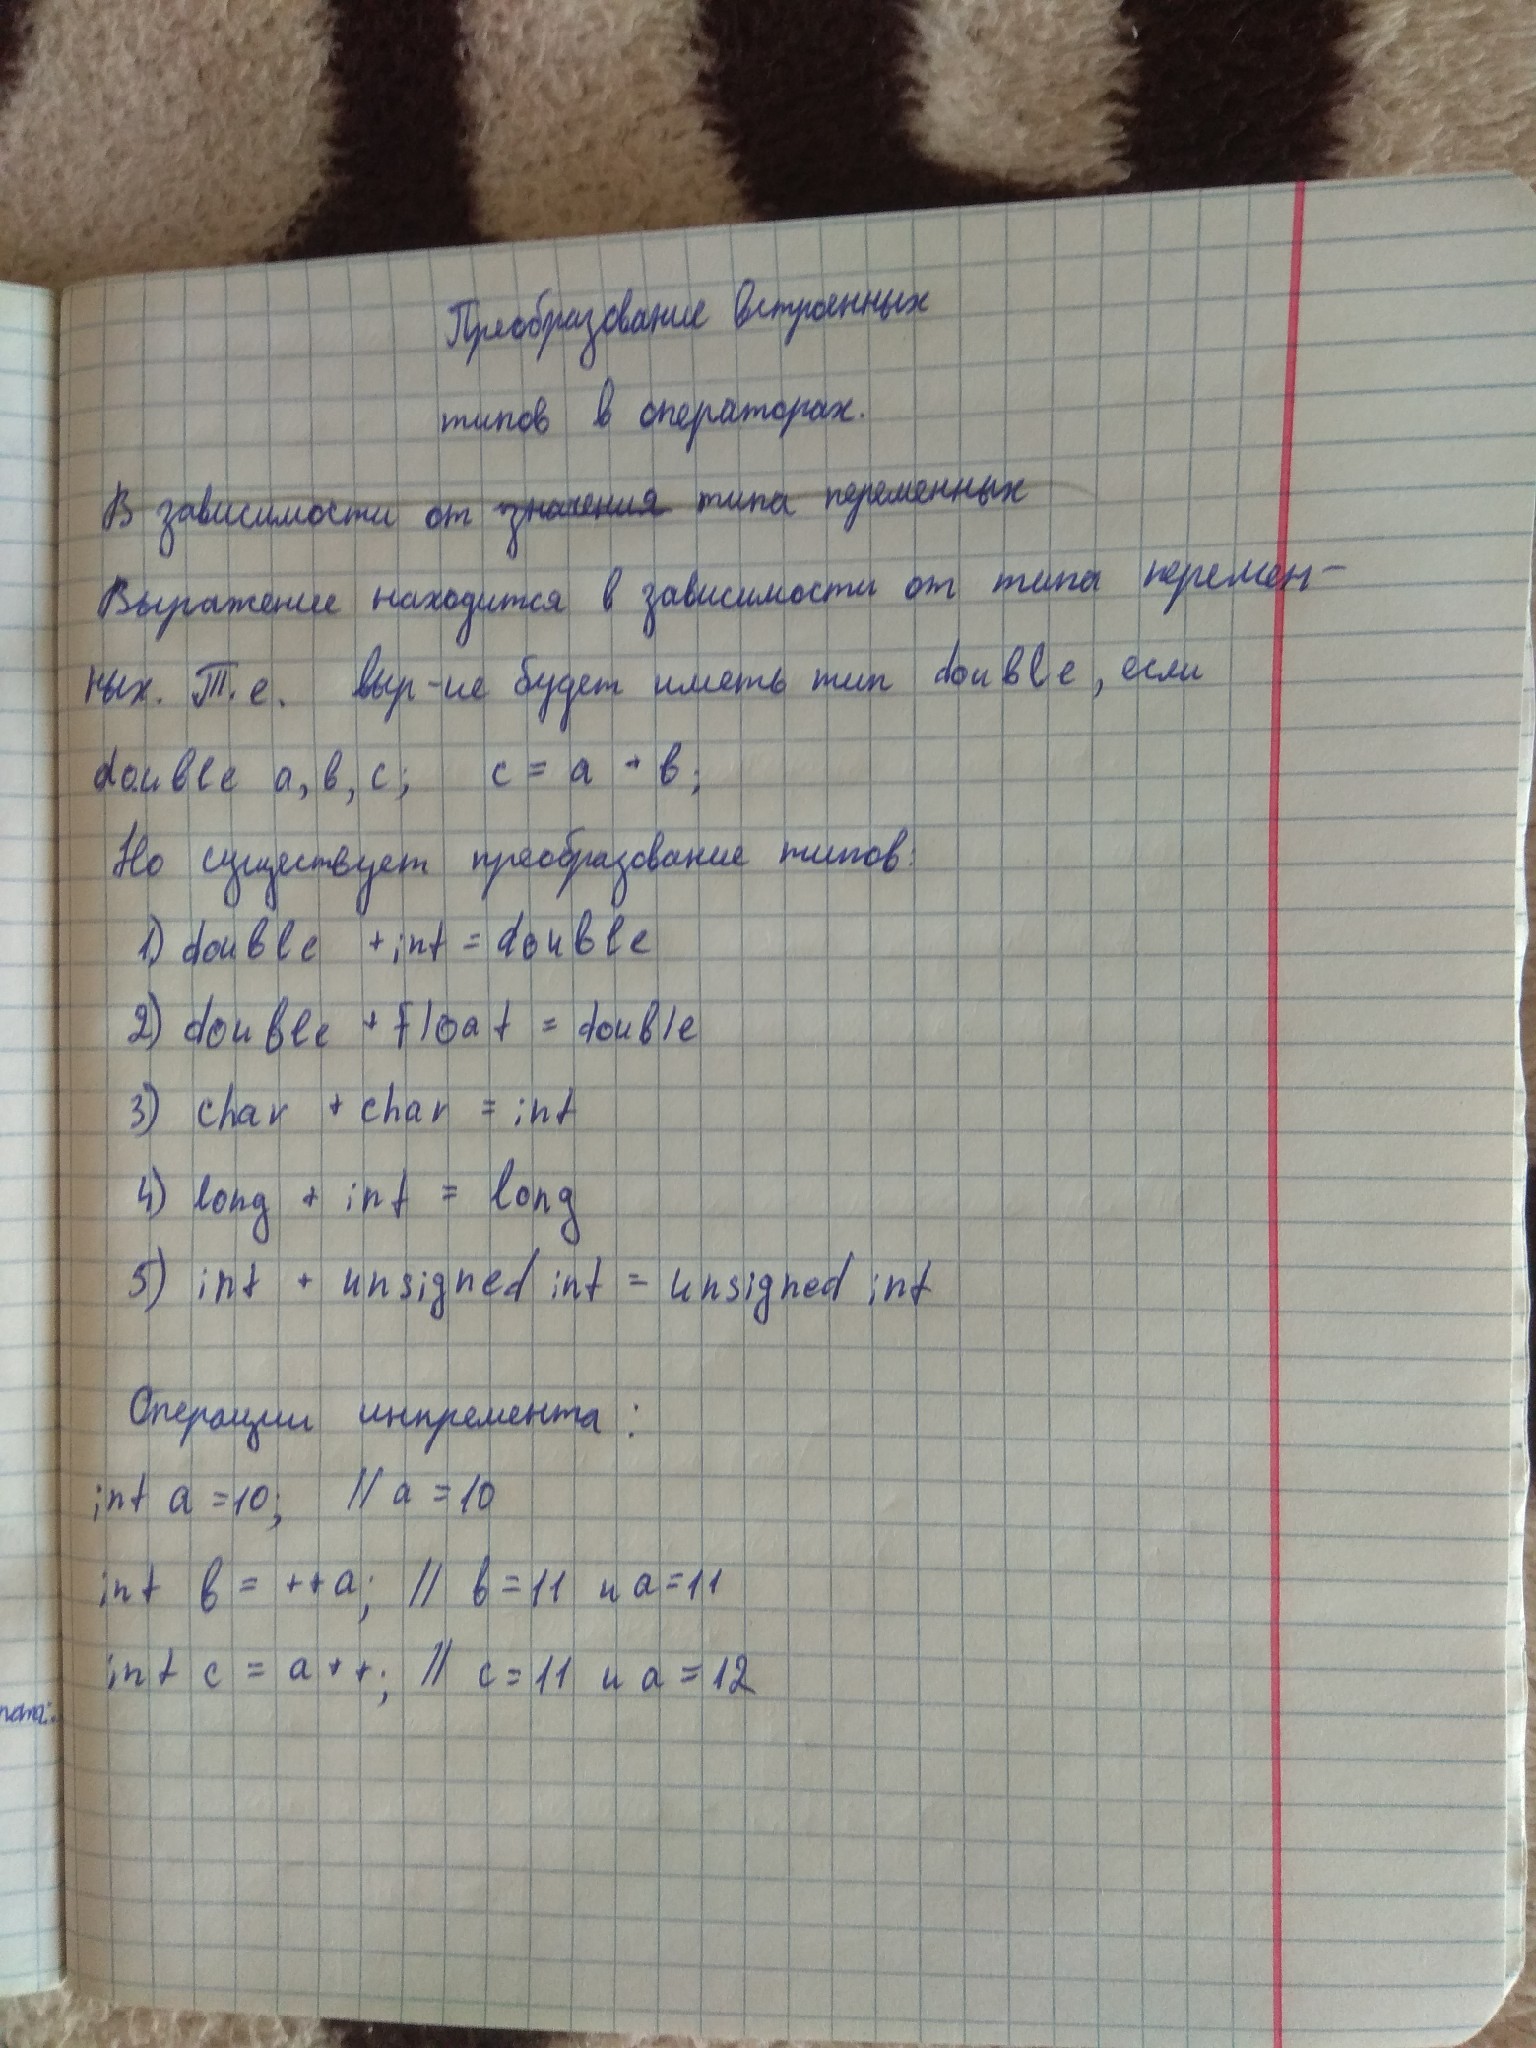 Преобразование встроенных
типов в операторах.
В зависимости от значения типа переменных
Выражение находится в зависимости от типа перемен-
ных. Т.е. выр-ие будет иметь тип double, если
double a, b, c; c = a + b;
Но существует преобразование типов:
1) double + int = double
2) double + float = double
3) char + char = int
4) long + int = long
5) int + unsigned int = unsigned int
Операции инкремента:
int a = 10; // a = 10
int b = ++a; // b = 11 и a = 11
int c = a++; // c = 11 и a = 12